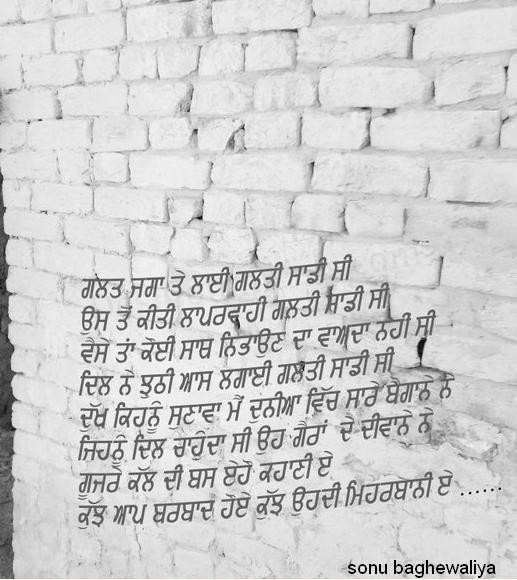 ਗਲਤ ਜਗਾ ਤੇ ਲਾਈ ਗਲਤੀ ਸਾਡੀ ਸੀ
ਉਸ ਤੋਂ ਕੀਤੀ ਲਾਪਰਵਾਹੀ ਗਲਤੀ ਸਾਡੀ ਸੀ
ਵੈਸੇ ਤਾਂ ਕੋਈ ਸਾਥ ਨਿਭਾਉਣ ਦਾ ਵਾਅਦਾ ਨਹੀ ਸੀ
ਦਿਲ ਨੇ ਝੁਠੀ ਆਸ ਲਗਾਈ ਗਲਤੀ ਸਾਡੀ ਸੀ
ਦੁੱਖ ਕਿਹਨੂੰ ਸੁਣਾਵਾ ਮੈਂ ਦੁਨੀਆ ਵਿੱਚ ਸਾਰੇ ਬੇਗਾਨੇ ਨੇ
ਜਿਹਨੂੰ ਦਿਲ ਚਾਹੁੰਦਾ ਸੀ ਉਹ ਗੈਰਾਂ ਦੇ ਦੀਵਾਨੇ ਨੇ
ਗੂਜਰੇ ਕੱਲ ਦੀ ਬਸ ਏਹੋ ਕਹਾਣੀ ਏ
ਕੁੱਝ ਆਪ ਬਰਬਾਦ ਹੋਏ ਕੁੱਝ ਉਹਦੀ ਮਿਹਰਬਾਨੀ ਏ ......
sonu baghewaliya